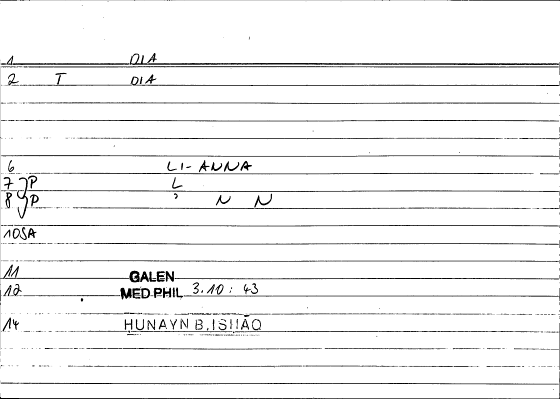 1 DIA
2 T DIA
6 LI- ANNA
7 P L
8 P ' N N
10SA
11 GALEN
12 MED PHIL 3.10: 43
14 ḤUNAYN B.ISḤĀQ